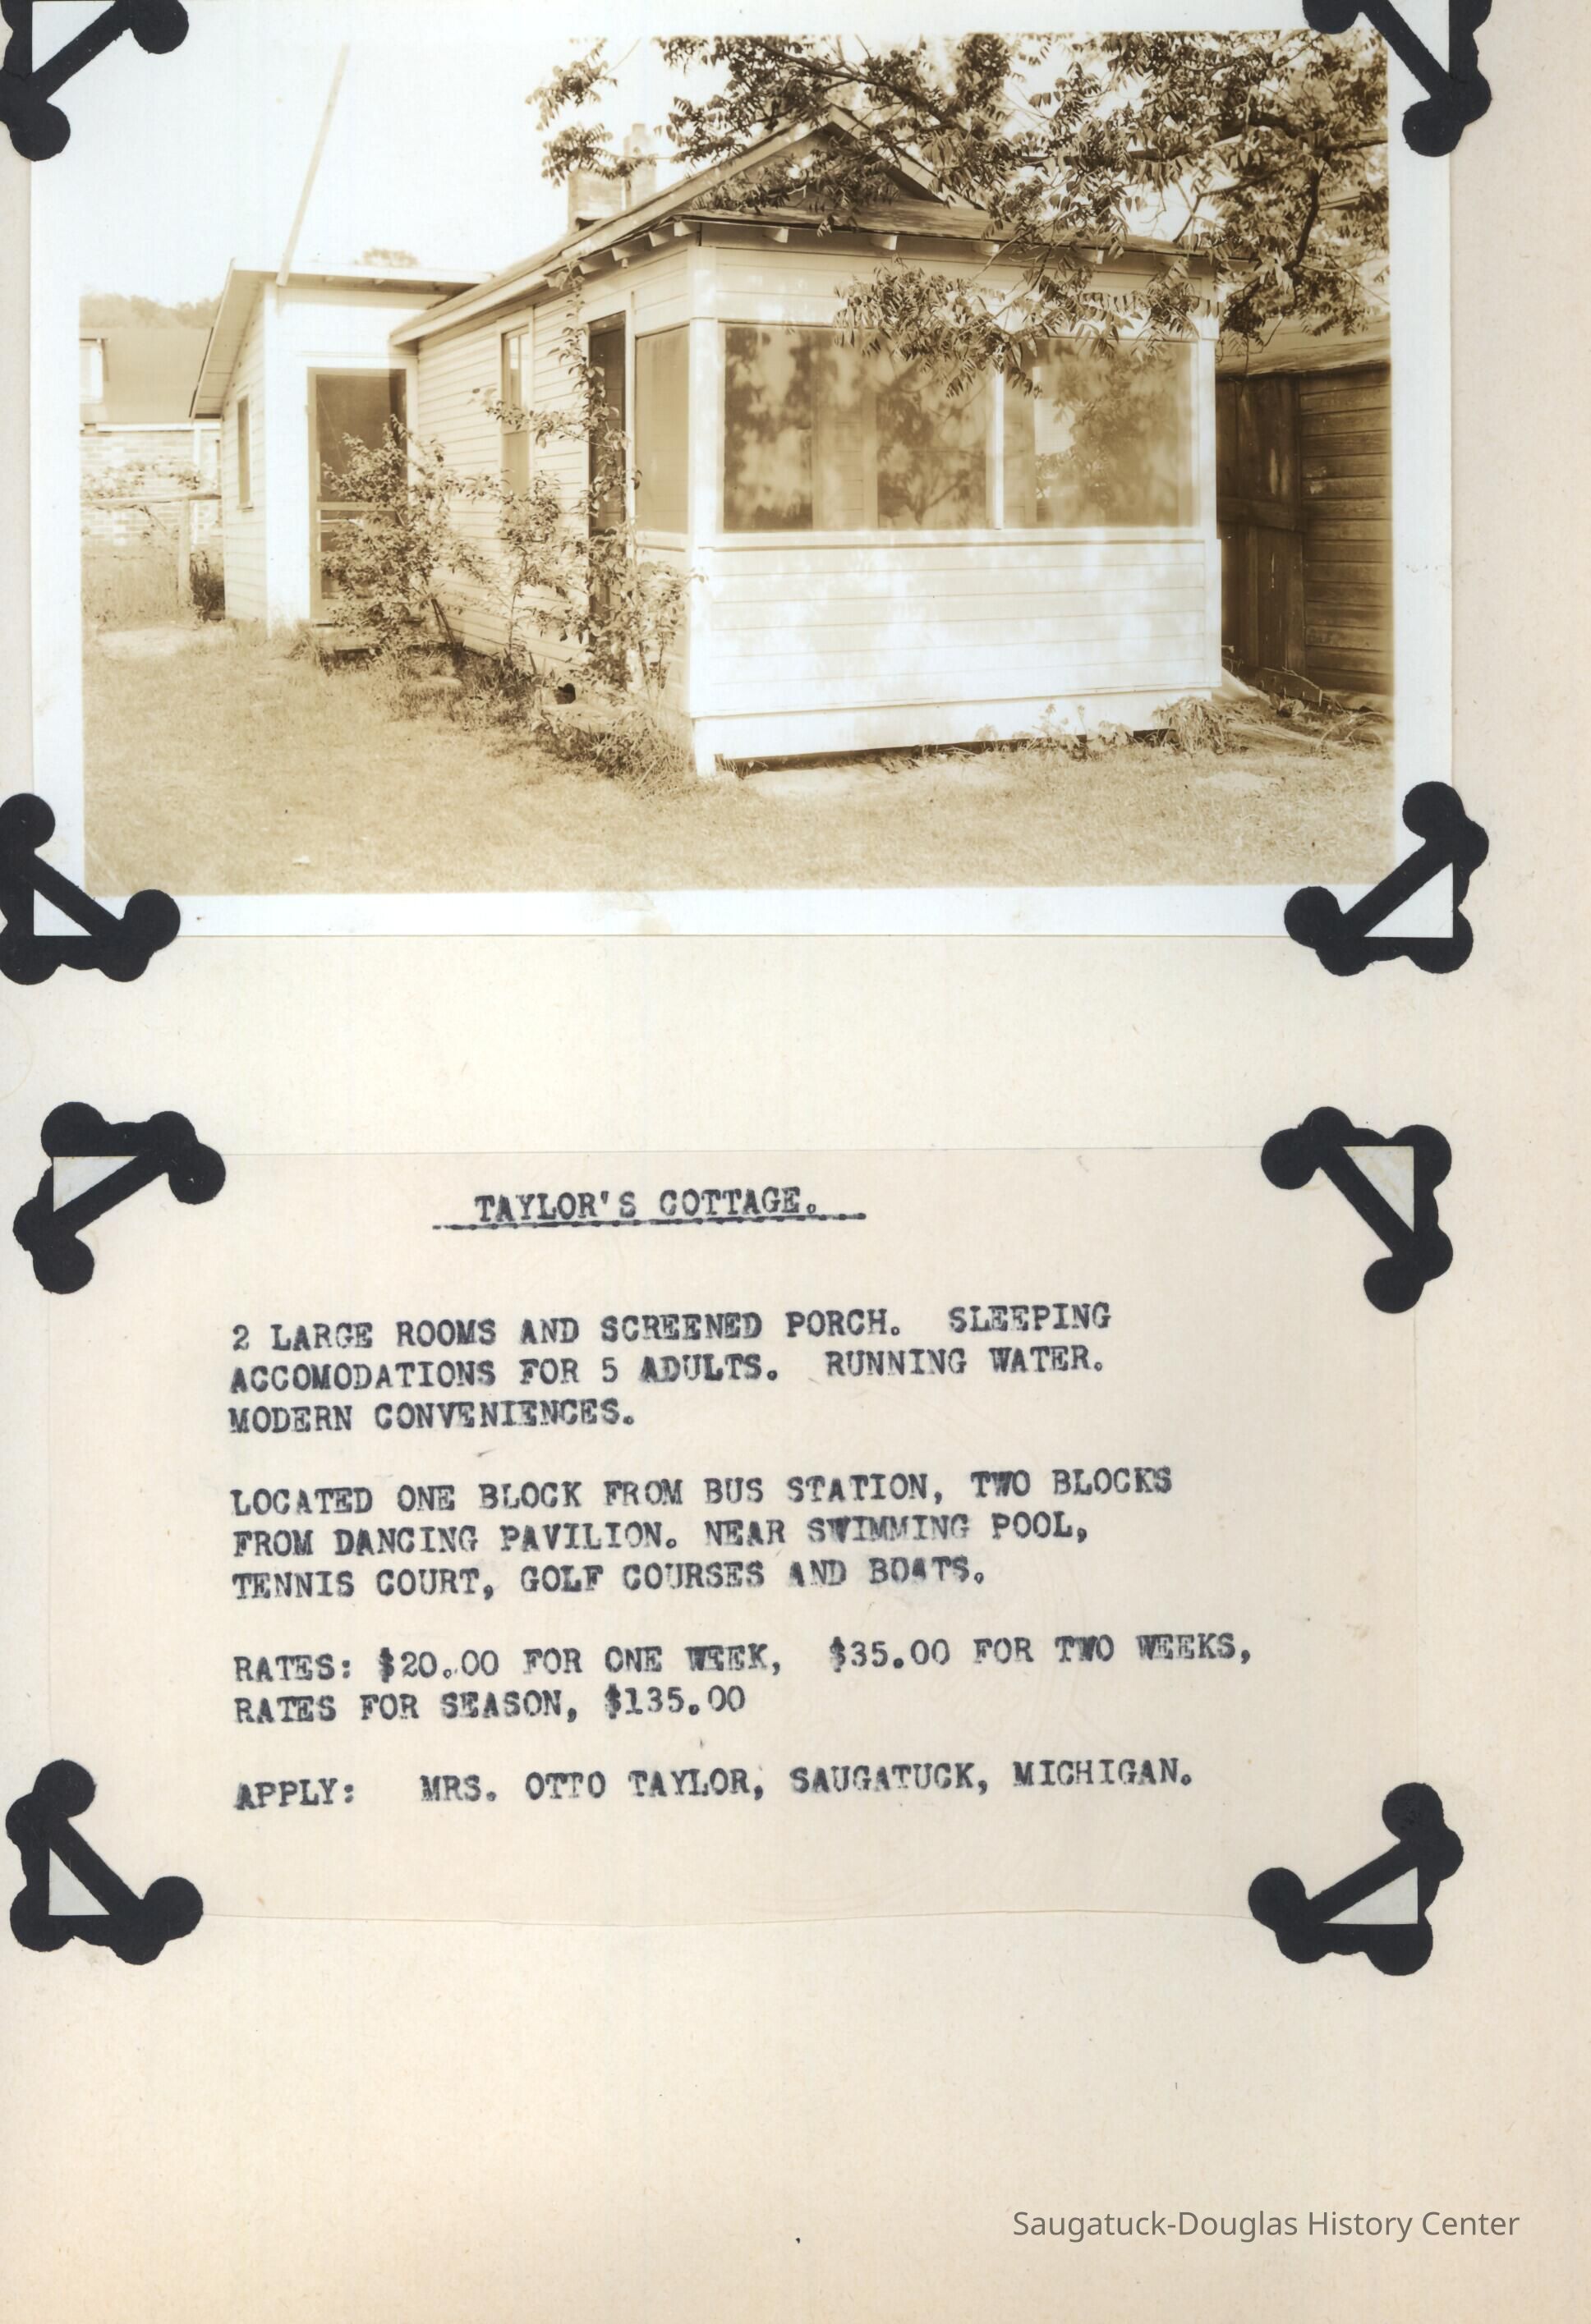 TAYLOR'S COTTAGE.
2 LARGE ROOMS AND SCREENED PORCH. SLEEPING
ACCOMODATIONS FOR 5 ADULTS. RUNNING WATER.
MODERN CONVENIENCES.
LOCATED ONE BLOCK FROM BUS STATION, TWO BLOCKS
FROM DANCING PAVILION. NEAR SWIMMING POOL,
TENNIS COURT, GOLF COURSES AND BOATS.
RATES: $20.00 FOR ONE WEEK, $35.00 FOR TWO WEEKS,
RATES FOR SEASON, $135.00
APPLY: MRS. OTTO TAYLOR, SAUGATUCK, MICHIGAN.
Saugatuck-Douglas History Center